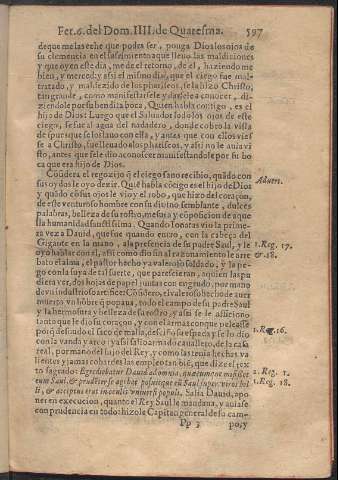 Fer.6. del Dom. IIII. de Quaresma. 597
de que me las eche que podra ser, ponga Dios los ojos de
su clemencia en el sufrimiento a que lleuo las maldiciones
y que oy en este dia, me de el retorno, de el, haziendo me
bien, y merced y assi el mismo dia, que el ciego fue mal-
tratado, y maldezido de los phariseos, se la hizo Christo,
tan grande, como manifestarsele y darsele a conocer, di-
ziendole por su bendita boca, Quien habla contigo, es el
hijo de Dios: Luego que el Saluador lodo los ojos de este
ciego, se fue al agua del nadadero, donde cobro la vista
de puro que se los lauo con ella, y antes que con ellos vies
se a Christo, fue lleuado a los phariseos, y assi no le auia vi
sto, antes que se le dio a conocer manifestandole por su bo
ca que era hijo de Dios.
Cõsidera el regozijo q̃ el ciego sano recibio, quãdo con
sus oydos le oyo dezir. Quiẽ habla cõtigo es el hijo de Dios Aduen.
y quãdo cõ sus ojos le vio y el robo, que hizo del coraçon,
de este venturoso hombre con su diuino semblante, dulces
palabras, belleza de su rostro, mesura y cõposicion de aque
lla humanidad sanctissima. Quando Ionatas vio la prime-
ra vez a Dauid, que fue quando entro, con la cabeça del
Gigante en la mano, a la presencia de su padre Saul, y le 1. Reg. 17.
oyo hablar con el, assi como dio fin al razonamiento le arre & 18.
bato el alma, el pastor hecho ya valeroso soldado, y la pe-
go con la suya de tal suerte, que parescieran, a quien las pu
diera ver, dos hojas de papel juntas con engrudo, por mano
de vn industrioso artifice: Cõsidero, el valeroso hecho de auer
muerto vn hõbre q̃ ponia, todo el campo de su padre Saul
y la hermosura y belleza de su rostro, y assi se le afficiono
tanto que le dio su coraçon, y con el armas con que pelease 1. Reg. 16.
con la vanda y arco: y assi salio armado cauallero, de la casa
real, por mano del hijo del Rey, y como las tenia hechas va
lientes y jamas cobardes las empleo tan biẽ, que dize el tex
to sagrado: Egrediebatur Dauid ad omnia, quæcumque misisset 2. Reg. 1.
eum Saul, & prudenter se agebat posuitque eũ Saul super viros bel 1. Reg. 18.
li, & acceptus erat in oculis vniuersi populi, Salia Dauid, a po-
ner en execucion, quanto el Rey Saul le mandaua, y auiase
con prudencia en todo: hizole Capitan general de su cam-
Pp 3 po, y